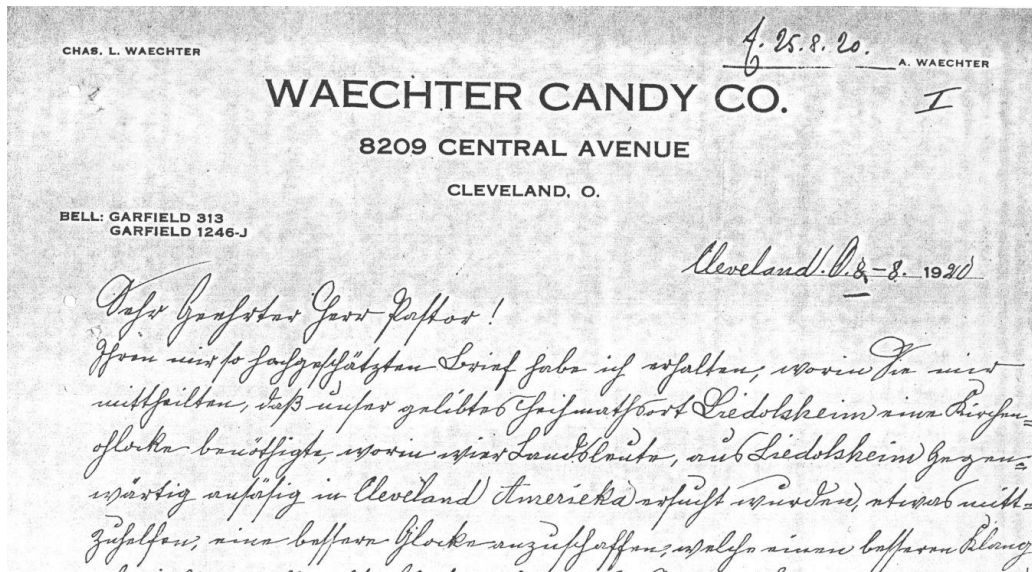 f. 25.8.20.
CHAS. L. WAECHTER
A. WAECHTER
WAECHTER CANDY CO.
I
8209 CENTRAL AVENUE
CLEVELAND, O.
BELL: GARFIELD 313
GARFIELD 1246-J
Cleveland. O. 8-8. 1920
Sehr Geehrter Herr Pastor!
Ihren mir so hochgeschätzten Brief habe ich erhalten, worin Sie mir
mittheilten, daß unser gelibtes Heihmathsort Liedolsheim eine Kirchen-
glocke benöthigte, worin wier Landsleute, aus Liedolsheim Gegen-
wärtig ansäsig in Cleveland Amerieka ersucht wurden, etwas mitt-
zuhelfen, eine bessere Glocke anzuschaffen, welche einen besseren Klang